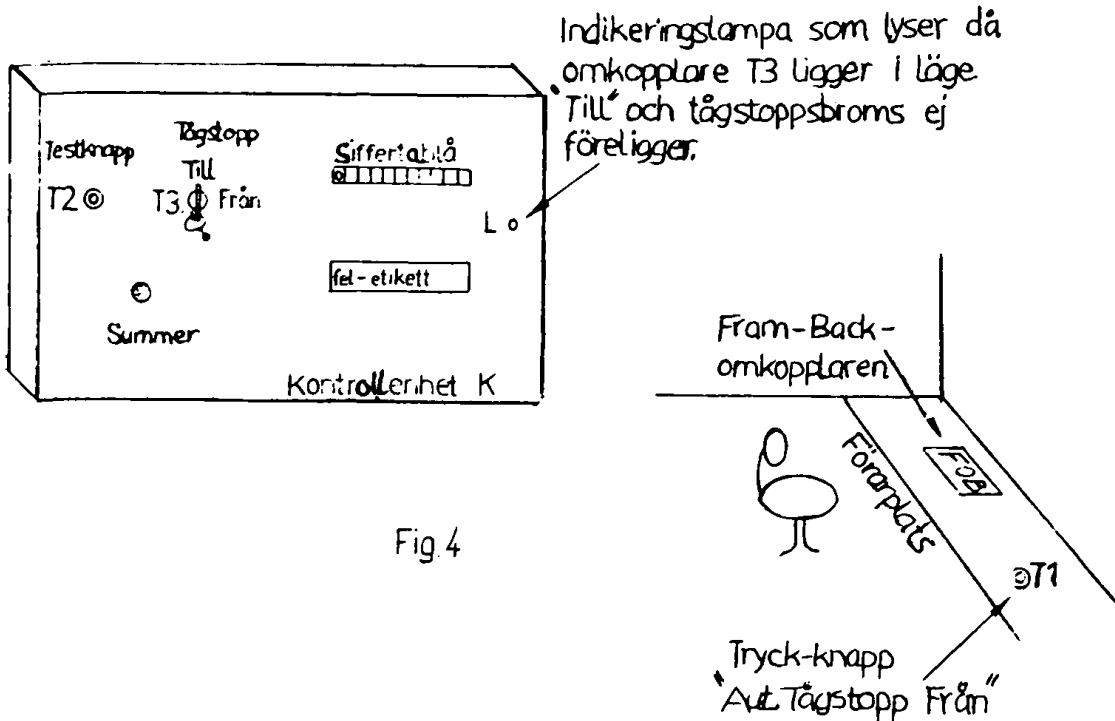 Indikeringslampa som lyser då
omkopplare T3 ligger i läge
"Till" och tågstoppsbroms ej
föreligger.
Testknapp
T2
Tågstopp
Till
T3
Från
Siffertablå
L
fel-etikett
Summer
Kontrollenhet K
Fram-Back-
omkopplaren
FOB
Förarplats
T1
Fig. 4
Tryck-knapp
"Aut. Tågstopp Från"